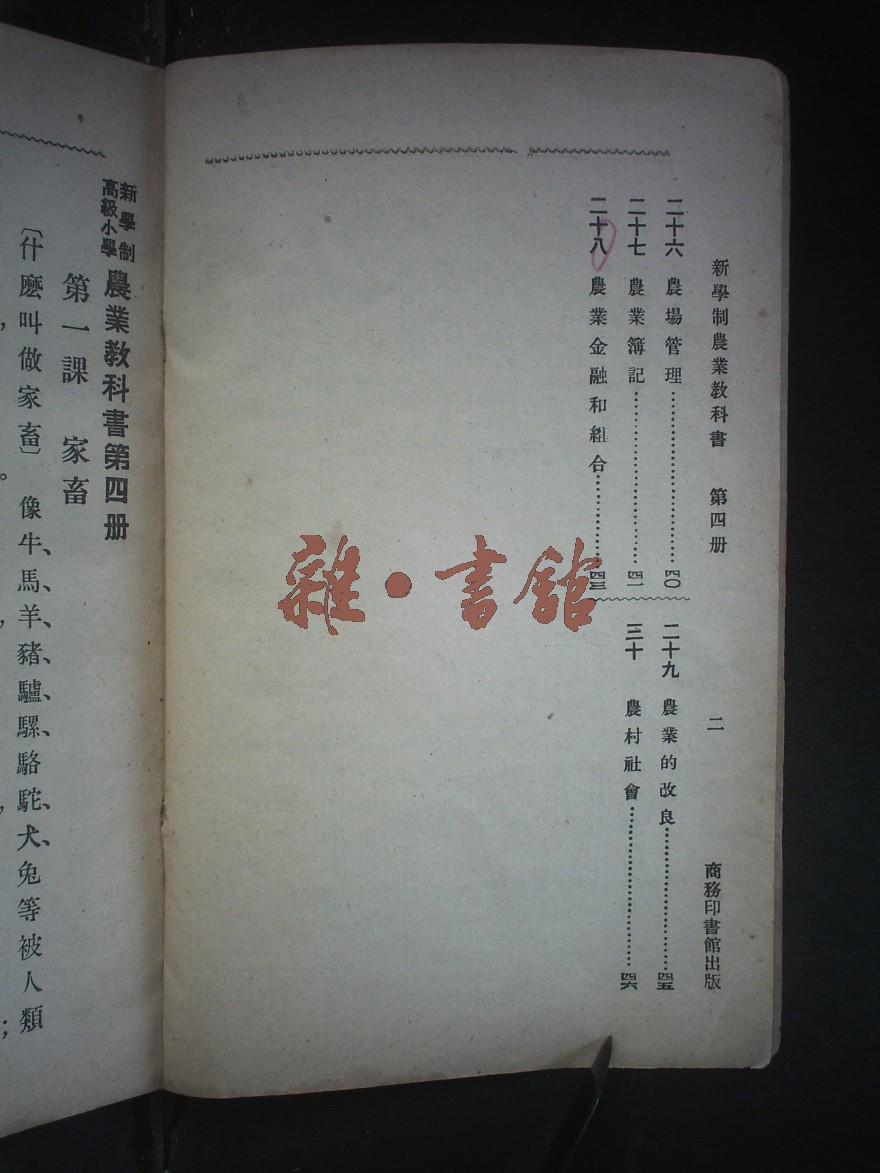 新學制農業教科書 第四册 二 商務印書館出版
二十六 農場管理 四〇
二十七 農業簿記 四一
二十八 農業金融和組合 四三
二十九 農業的改良 四五
三十 農村社會 四六
新學制
高級小學
農業教科書第四册
第一課 家畜
〔什麽叫做家畜〕 像牛、馬、羊、豬、驢、騾、駱駝、犬、兔等被人類
雜·書館